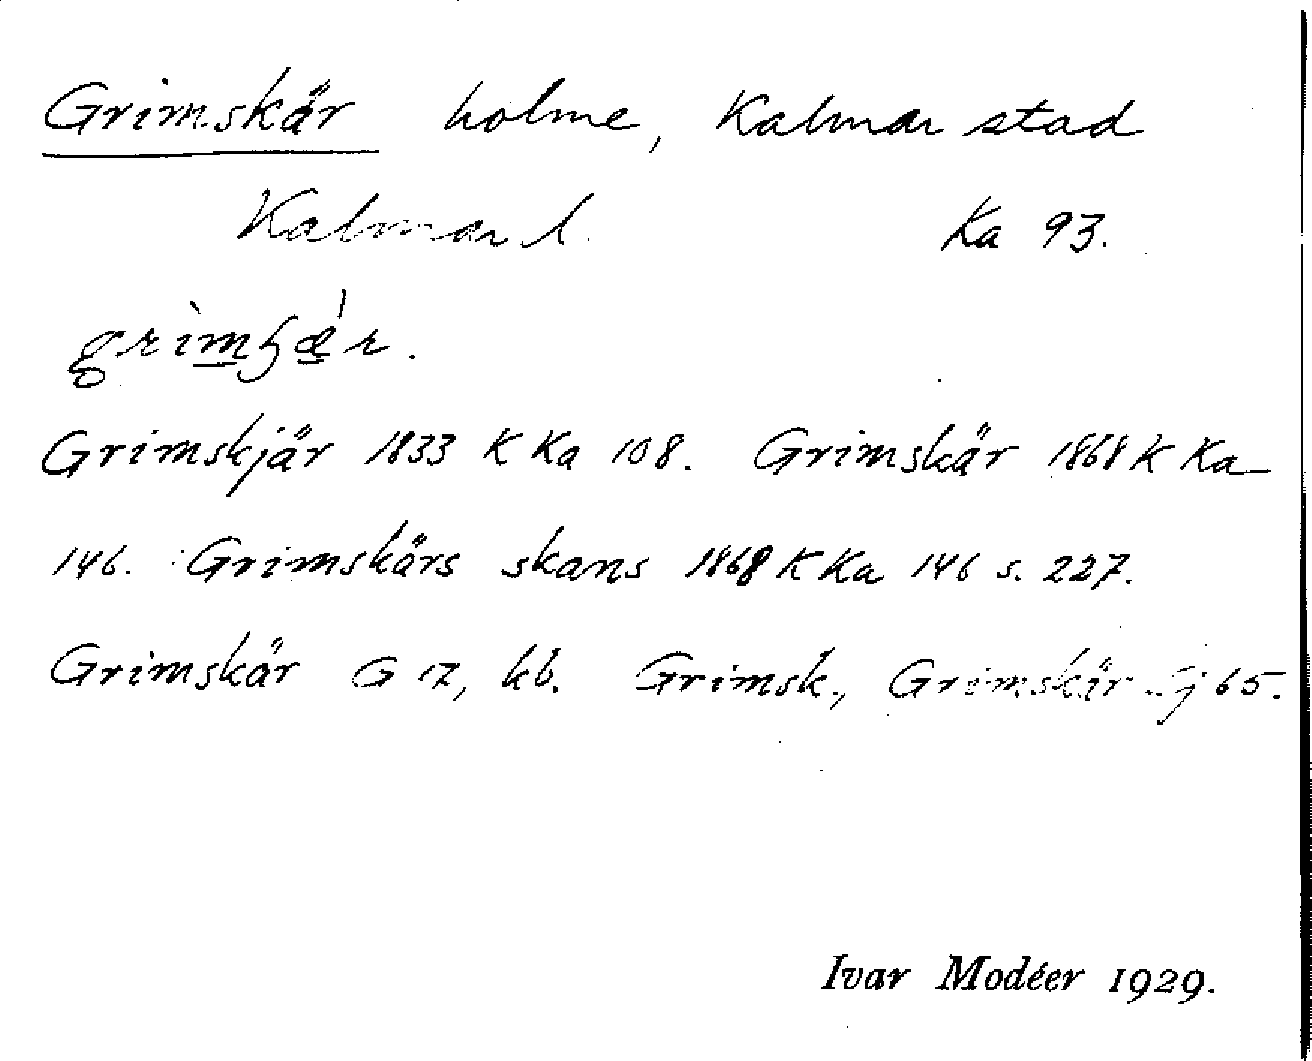 Grimskär holme, Kalmar stad
Kalmar l. Ka 93.
Grimskjär 1833 K Ka 108. Grimskär 1868 K Ka
146. Grimskärs skans 1868 K Ka 146 s. 227.
Grimskär G 17, kb. Grimsk., Grimskär Sj 65.
Ivar Modéer 1929.